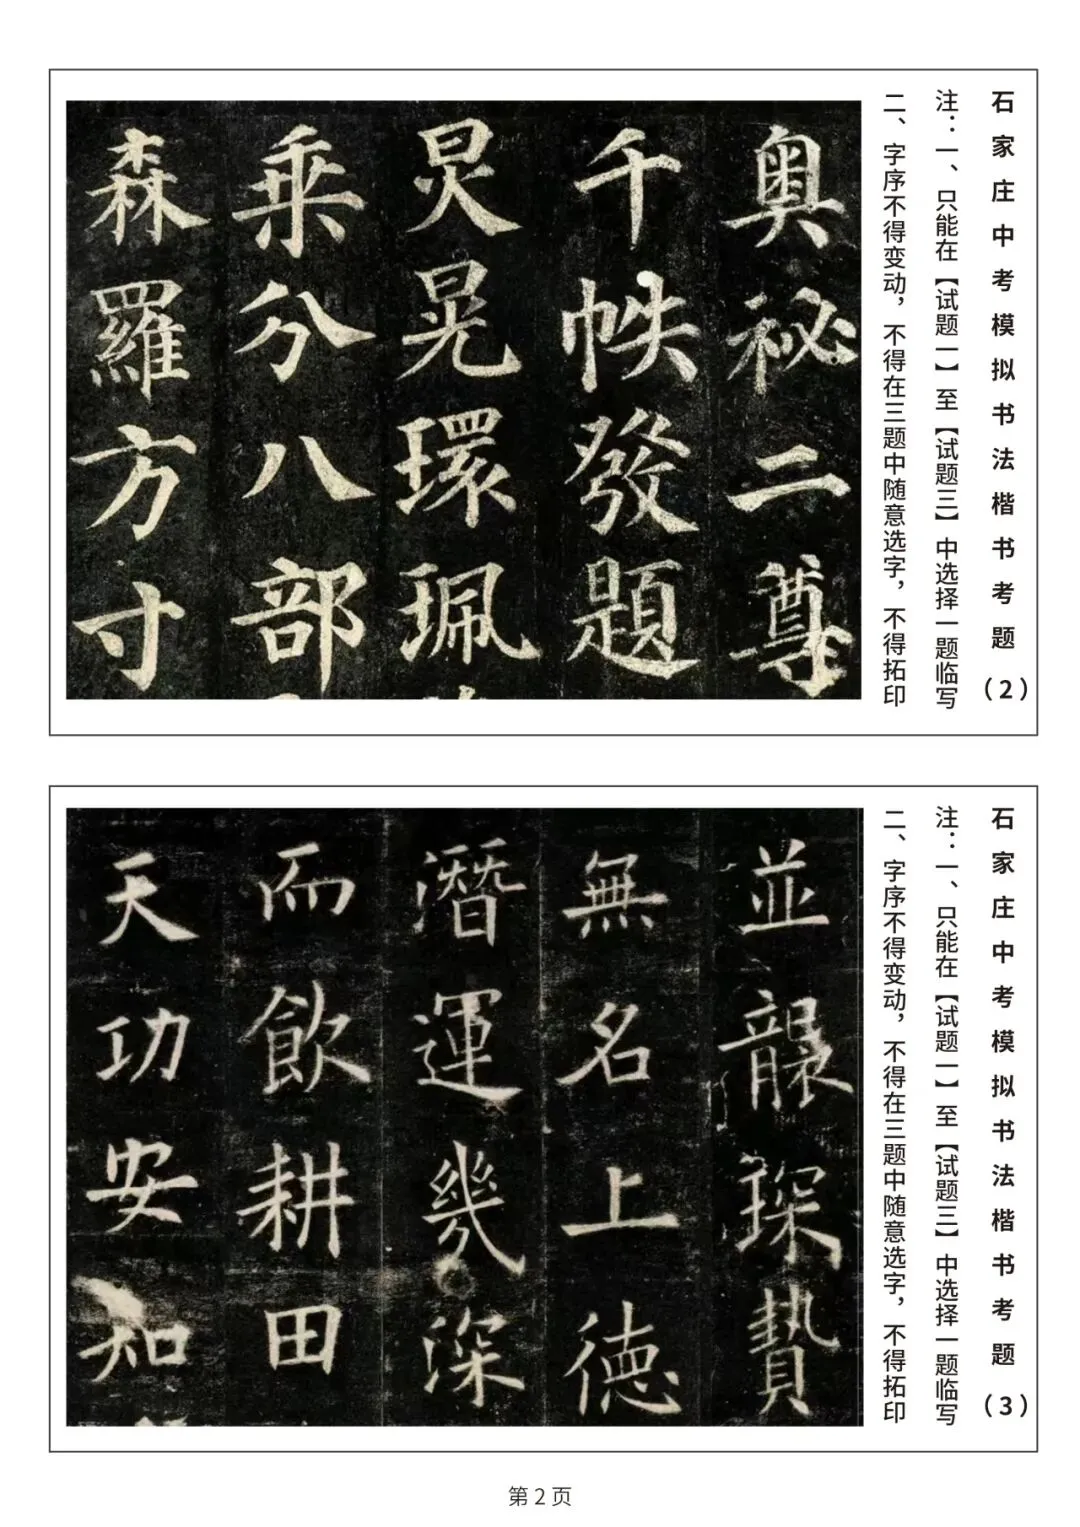 石家庄中考模拟书法楷书考题（2）
注：一、只能在【试题一】至【试题三】中选择一题临写
二、字序不得变动，不得在三题中随意选字，不得拓印
奥祕二尊
千帙發題
炅晃環珮
乘分八部
森羅方寸
石家庄中考模拟书法楷书考题（3）
注：一、只能在【试题一】至【试题三】中选择一题临写
二、字序不得变动，不得在三题中随意选字，不得拓印
並龔琛贄
無名上德
潛運幾深
而飲耕田
天功安知
第 2 页